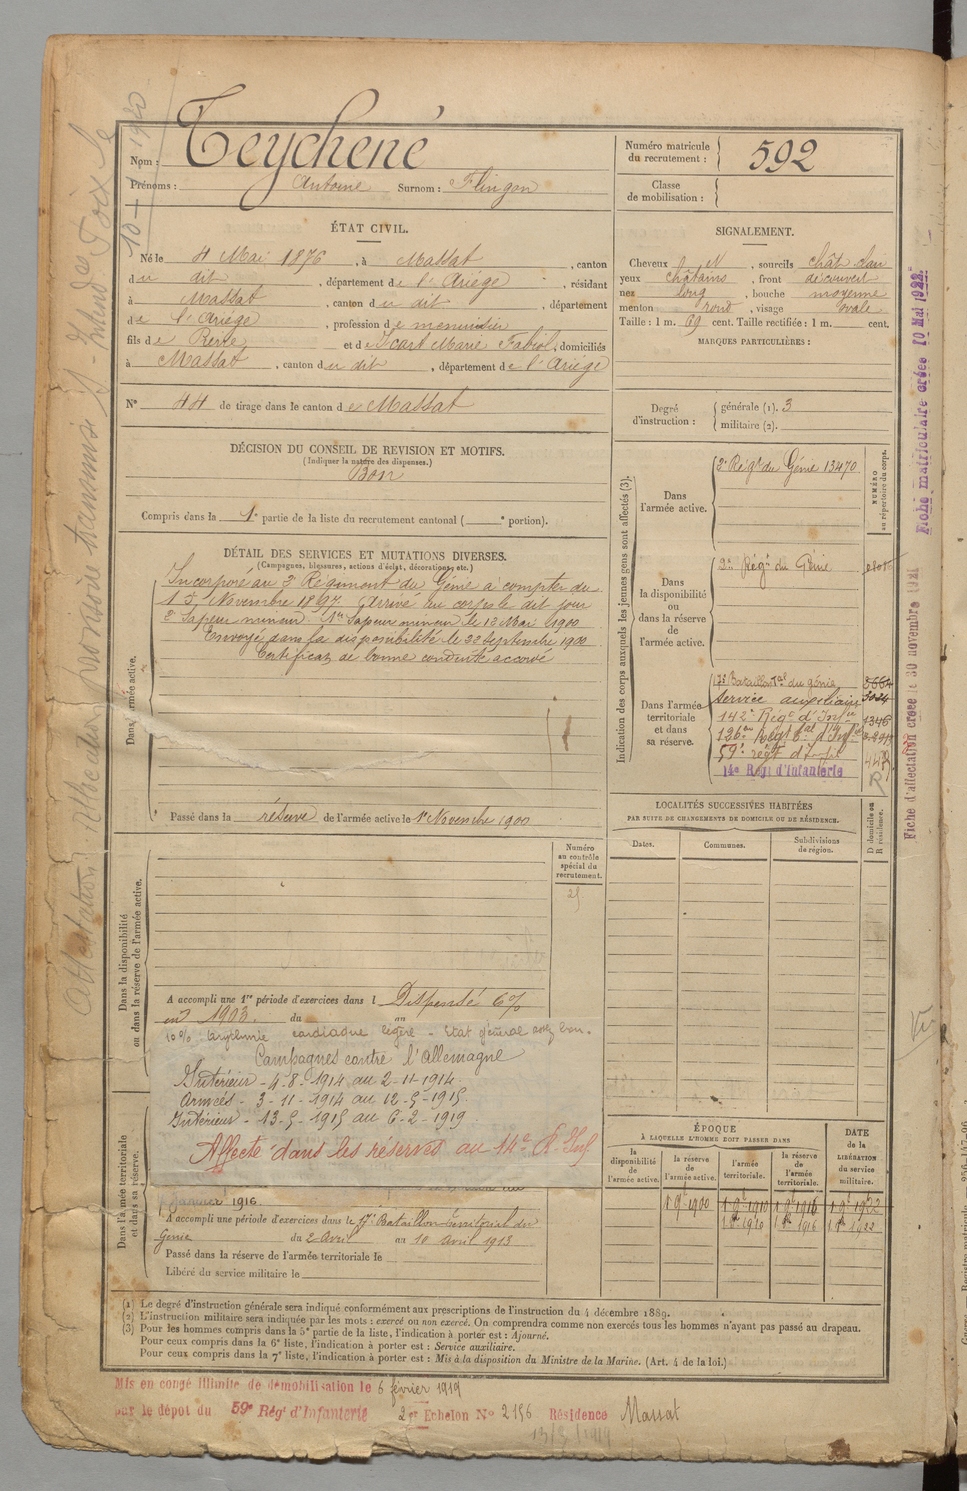 Nom : Teychené
Prénoms : Antoine Surnom : Flingon
Numéro matricule du recrutement : 592
Classe de mobilisation :
ÉTAT CIVIL.
Né le 4 Mai 1876, à Massat, canton
du dit, département de l'Ariége, résidant
à Massat, canton du dit, département
de l'Ariége, profession de menuisier
fils de Pierre et de Icart Marie, domiciliés
à Massat, canton du dit, département de l'Ariége
N° 44 de tirage dans le canton de Massat
SIGNALEMENT.
Cheveux N, sourcils chât clair
yeux châtains, front découvert
nez long, bouche moyenne
menton rond, visage ovale
Taille : 1 m. 69 cent. Taille rectifiée : 1 m. cent.
MARQUES PARTICULIÈRES :
Degré d'instruction : générale (1). 3
militaire (2).
DÉCISION DU CONSEIL DE REVISION ET MOTIFS.
(Indiquer la nature des dispenses.)
Bon
Compris dans la 1e partie de la liste du recrutement cantonal ( e portion).
DÉTAIL DES SERVICES ET MUTATIONS DIVERSES.
(Campagnes, blessures, actions d'éclat, décorations, etc.)
Dans l'armée active.
Incorporé au 2e Régiment du Génie à compter du
15 Novembre 1897. Arrivé au corps le dit jour
2e Sapeur mineur. 1er Sapeur mineur le 12 Mai 1900
Envoyé dans la disponibilité le 22 Septembre 1900
Certificat de bonne conduite accordé
Passé dans la réserve de l'armée active le 1er Novembre 1900
Indication des corps auxquels les jeunes gens sont affectés (3).
Dans l'armée active.
2e Régt du Génie 13470
NUMÉRO au répertoire du corps.
Dans la disponibilité ou dans la réserve de l'armée active.
2e Régt du Génie
Dans l'armée territoriale et dans sa réserve.
17e Bataillon Tal du génie
Service auxiliaire 3024
142e Régt d'Infie 1346
126e Régt tal d'Infie
59e régt d'Infie
14e Régt d'Infanterie
R
LOCALITÉS SUCCESSIVES HABITÉES
PAR SUITE DE CHANGEMENTS DE DOMICILE OU DE RÉSIDENCE.
Dates. Communes. Subdivisions de région. D domicile ou R résidence.
Dans la disponibilité ou dans la réserve de l'armée active.
Numéro au contrôle spécial du recrutement.
A accompli une 1re période d'exercices dans l Dispensé 6%
en 1903. du au
10% Arythmie cardiaque légère - Etat général assez bon.
Campagnes contre l'Allemagne
Intérieur - 4-8-1914 au 2-11-1914
Armées - 3-11-1914 au 12-5-1915
Intérieur - 13-5-1915 au 6-2-1919
Affecté dans les réserves au 14e R. Inf
Dans l'armée territoriale et dans sa réserve.
Janvier 1916.
A accompli une période d'exercices dans le 17e Bataillon territorial du
Génie du 2 Avril au 10 Avril 1913
Passé dans la réserve de l'armée territoriale le
Libéré du service militaire le
ÉPOQUE
À LAQUELLE L'HOMME DOIT PASSER DANS
la disponibilité de l'armée active.
la réserve de l'armée active.
l'armée territoriale.
la réserve de l'armée territoriale.
DATE de la LIBÉRATION du service militaire.
1 9e 1900 1 9e 1910 1 9e 1916 1 9e 1922
1 8e 1910 1 8e 1916 1 8e 1922
(1) Le degré d'instruction générale sera indiqué conformément aux prescriptions de l'instruction du 4 décembre 1889.
(2) L'instruction militaire sera indiquée par les mots : exercé ou non exercé. On comprendra comme non exercés tous les hommes n'ayant pas passé au drapeau.
(3) Pour les hommes compris dans la 5e partie de la liste, l'indication à porter est : Ajourné.
Pour ceux compris dans la 6e liste, l'indication à porter est : Service auxiliaire.
Pour ceux compris dans la 7e liste, l'indication à porter est : Mis à la disposition du Ministre de la Marine. (Art. 4 de la loi.)
Mis en congé illimité de démobilisation le 6 février 1919
par le dépôt du 59e Régt d'Infanterie 2e Echelon No 2156 Résidence Massat
Fiche matriculaire créée 10 Mai 1922
Fiche d'affectation créée le 30 novembre 1921